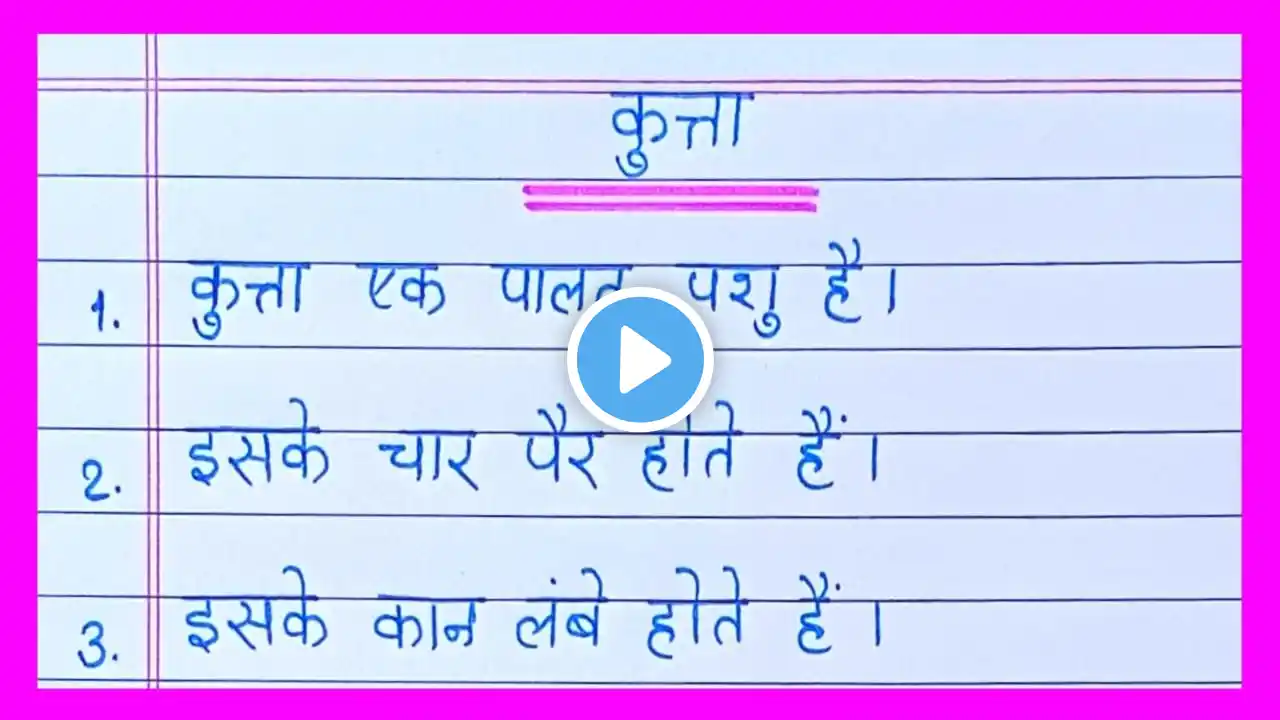 कुत्ता
1. कुत्ता एक पालतू पशु है।
2. इसके चार पैर होते हैं।
3. इसके कान लंबे होते हैं।